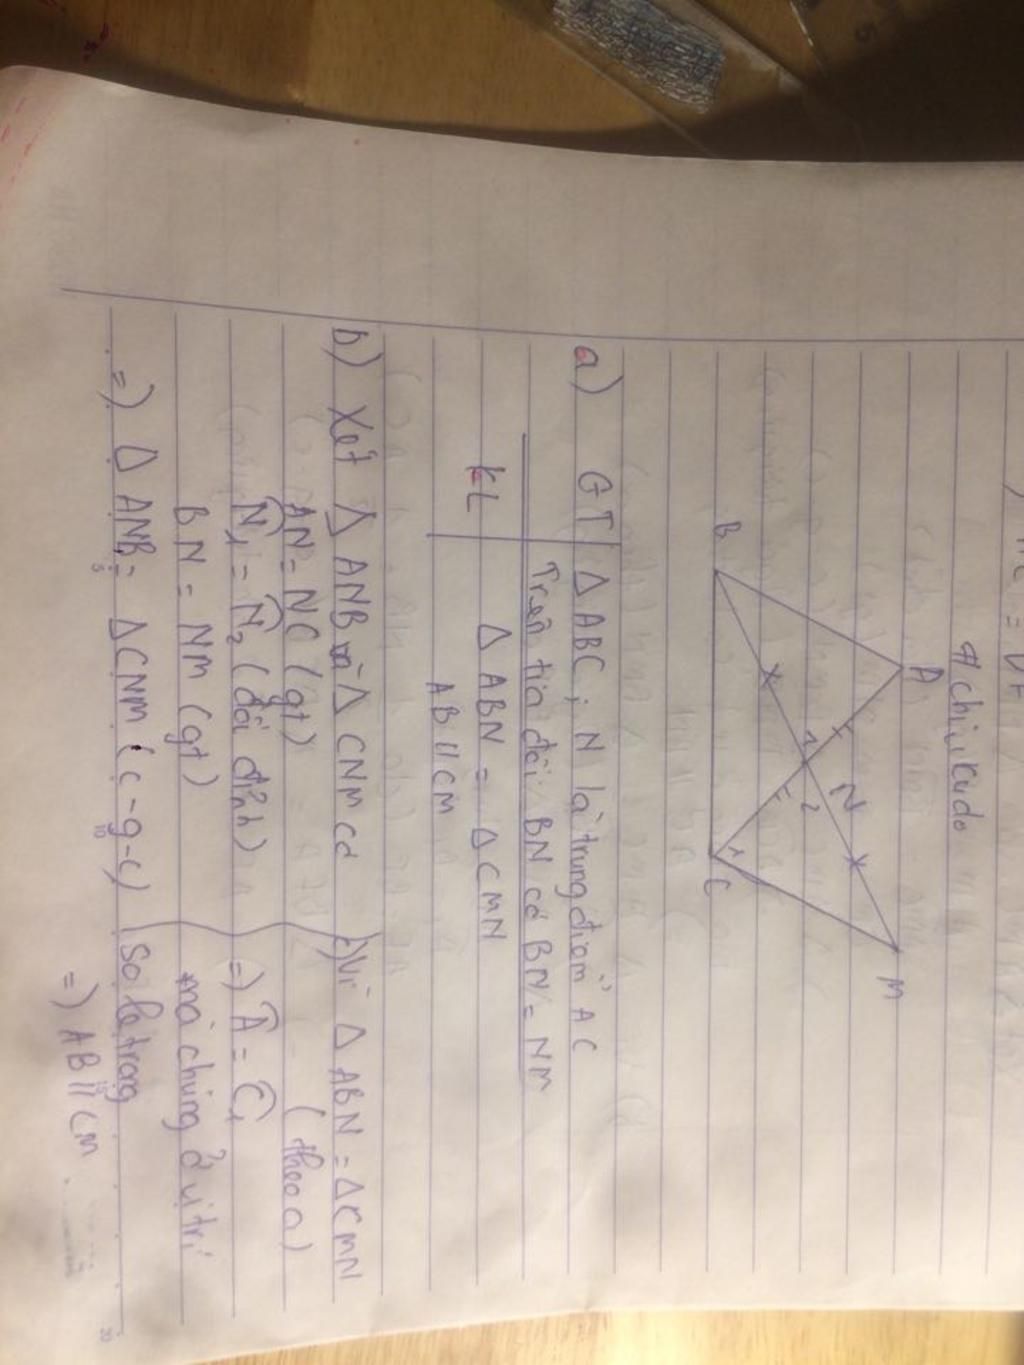 #chiikado
A
B
N
1
2
1
C
M
a) GT ΔABC; N là trung điểm AC
Trên tia đối BN có BN = NM
KL ΔABN = ΔCMN
AB // CM
b) Xét ΔANB và ΔCNM có
AN = NC (gt)
N̂₁ = N̂₂ (đối đỉnh)
BN = NM (gt)
=) ΔANB = ΔCNM (c-g-c)
c) Vì ΔABN = ΔCMN
(theo a)
=) Â = Ĉ₁
mà chúng ở vị trí
so le trong
=) AB // CM